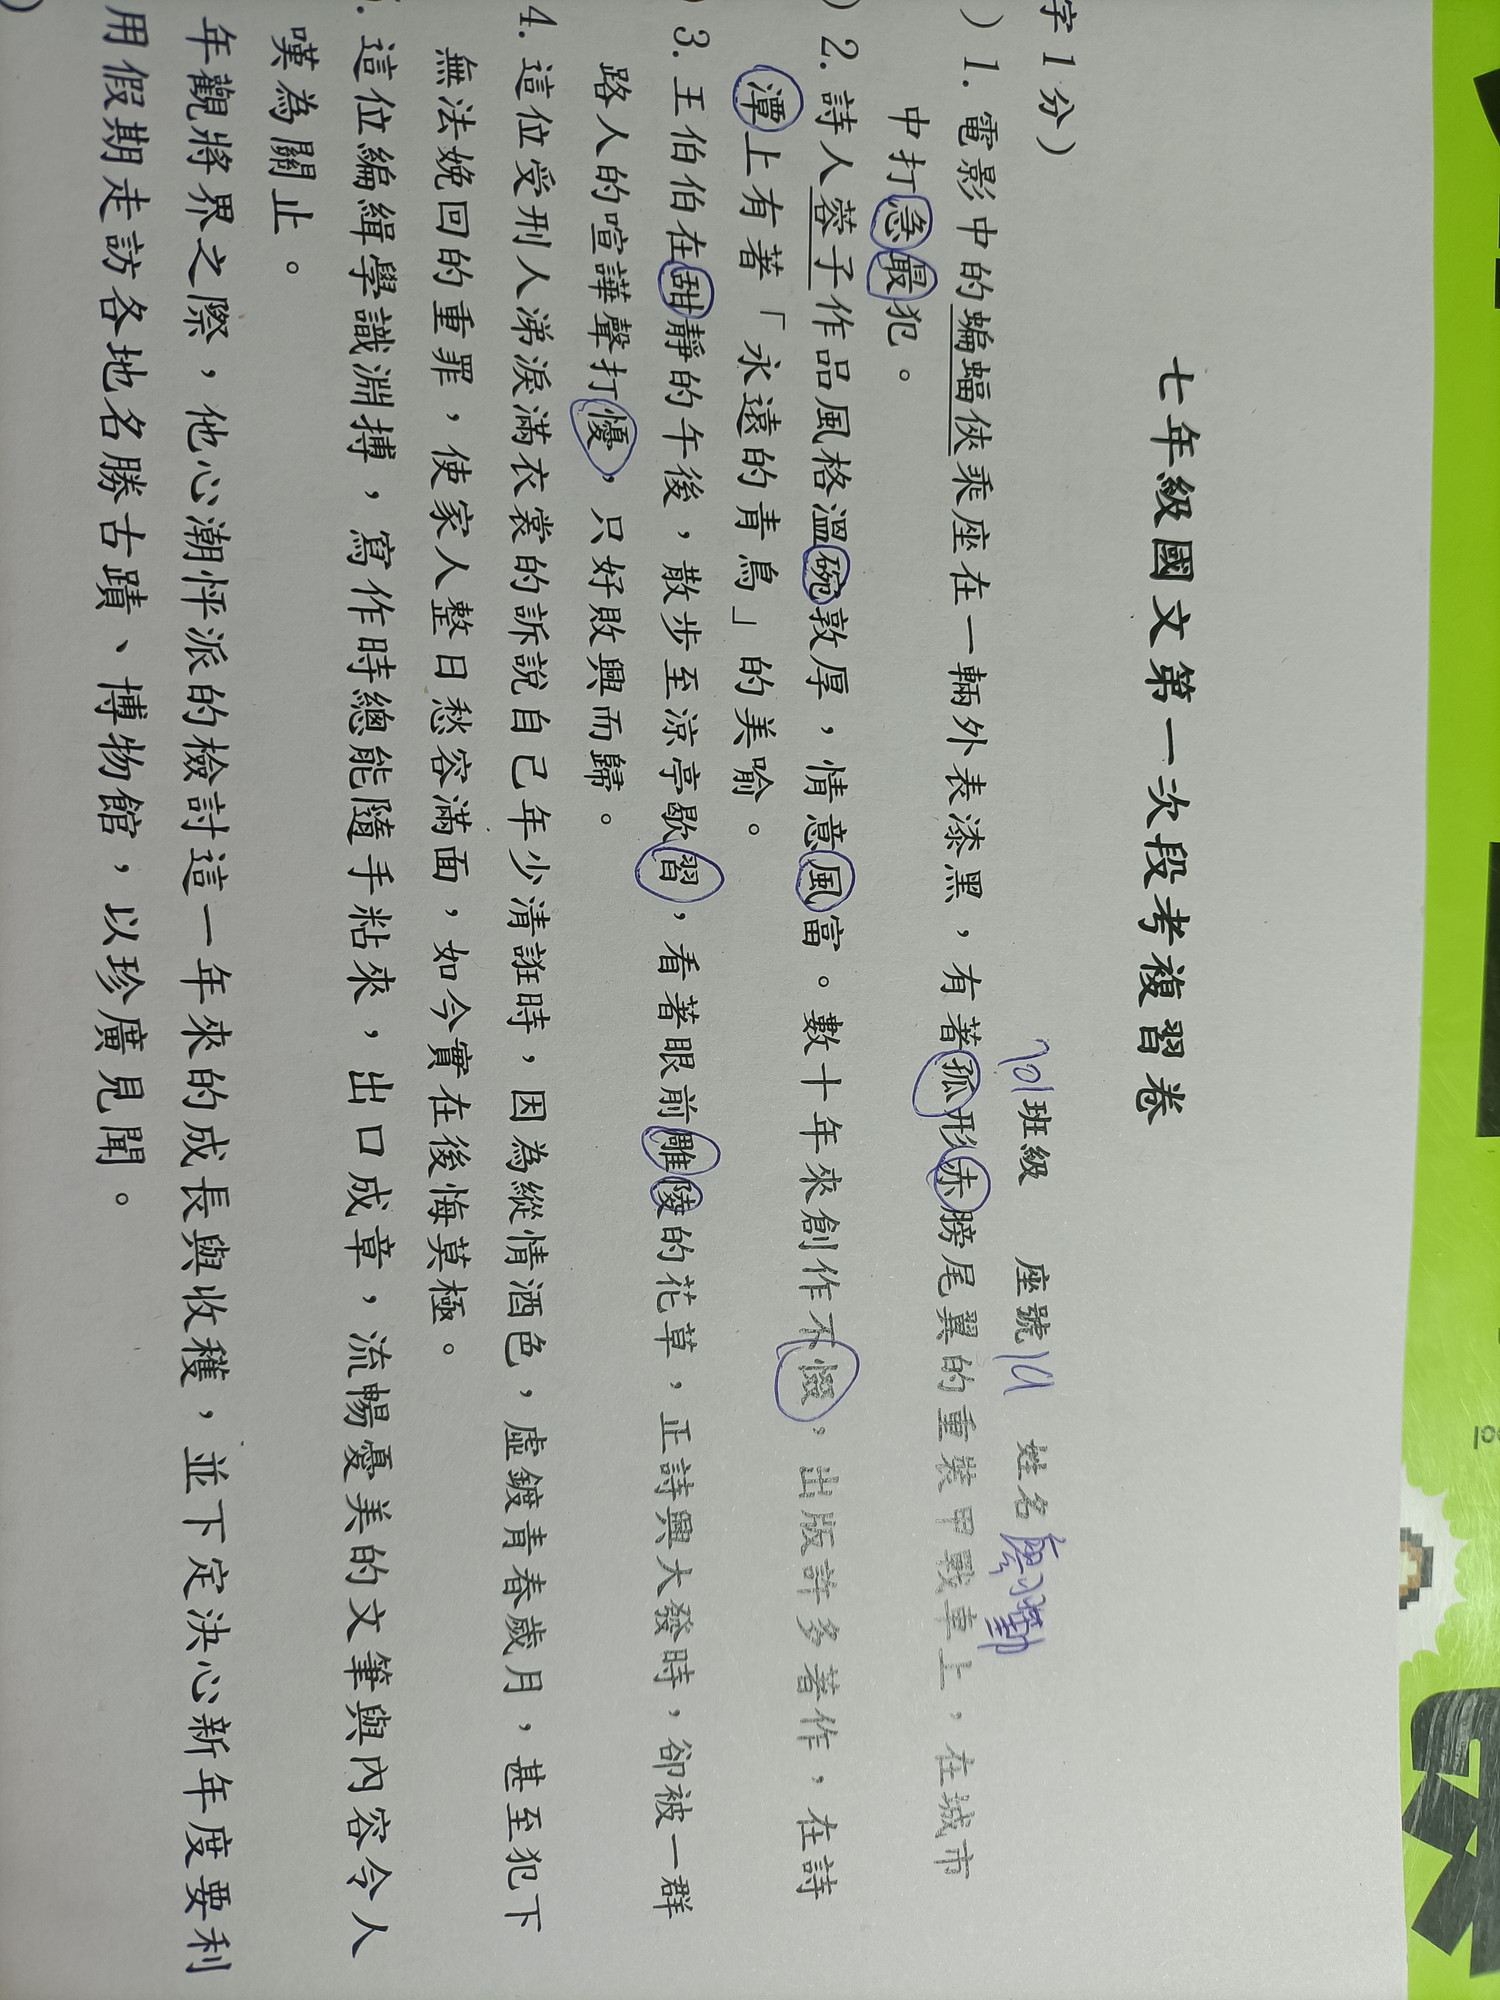 七年級國文第一次段考複習卷
701班級 座號19 姓名
字1分）
）1. 電影中的蝙蝠俠乘座在一輛外表漆黑，有著孤形赤膀尾翼的重裝甲戰車上，在城市
中打急最犯。
）2. 詩人蓉子作品風格溫碗敦厚，情意風富。數十年來創作不惙，出版許多著作，在詩
潭上有著「永遠的青鳥」的美喻。
）3. 王伯伯在甜靜的午後，散步至涼亭歇習，看著眼前雕陵的花草，正詩興大發時，卻被一群
路人的喧譁聲打懮，只好敗興而歸。
4. 這位受刑人涕淚滿衣裳的訴說自己年少清誑時，因為縱情酒色，虛鍍青春歲月，甚至犯下
無法娩回的重罪，使家人整日愁容滿面，如今實在後悔莫極。
. 這位編緝學識淵搏，寫作時總能隨手粘來，出口成章，流暢憂美的文筆與內容令人
嘆為關止。
年觀將界之際，他心潮怦派的檢討這一年來的成長與收穫，並下定決心新年度要利
用假期走訪各地名勝古蹟、博物館，以珍廣見聞。